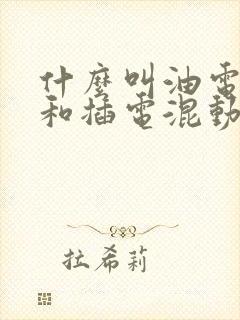 什麼叫油電
和插電混動
拉希莉